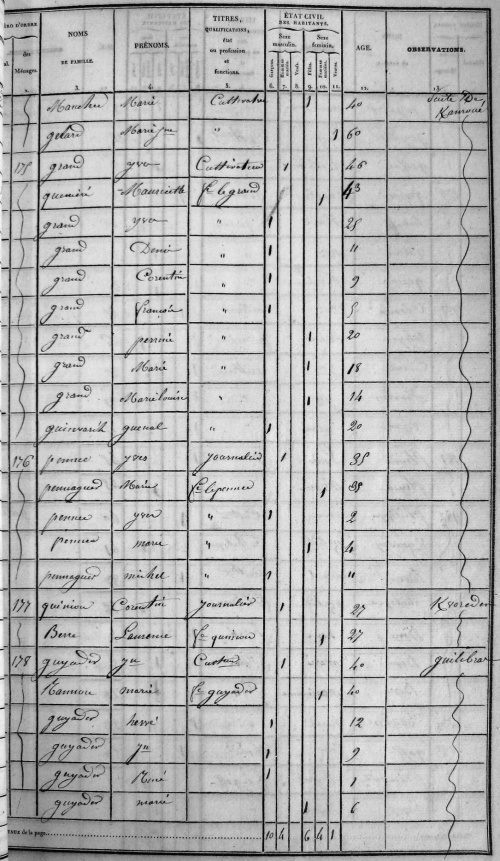 NUMÉRO D'ORDRE
des Ménages.
NOMS DE FAMILLE.
PRÉNOMS.
TITRES, QUALIFICATIONS, état ou profession et fonctions.
ÉTAT CIVIL DES HABITANTS.
Sexe masculin. Sexe féminin.
Garçons. Hommes mariés. Veufs. Filles. Femmes mariées. Veuves.
AGE.
OBSERVATIONS.
2. 3. 4. 5. 6. 7. 8. 9. 10. 11. 12. 13.
Marie Cultivateur 1 40 Suite De
Marie jne " 1 60
175 grand yves Cultivateur 1 46
Mauricette fe le grand 1 43
grand yves " 1 25
grand Denis " 1 11
grand Corentin " 1 9
grand françois " 1 5
grand perrine " 1 20
grand Marie " 1 18
grand Marie louise " 1 14
guenal " 1 20
176 pennec yves journalier 1 35
pennaguer Marie fe le pennec 1 35
pennec yves " 1 2
pennec marie " 1 4
pennaguer michel " 1 "
177 quiniou Corentin journalier 1 27
Berre Laurence fe quiniou 1 27
178 guyader jn 1 40
Kannou marie fe guyader 1 40
guyader hervé 1 12
guyader jn 1 9
guyader René 1 1
guyader marie 1 6
TOTAUX de la page 10 4 6 4 1